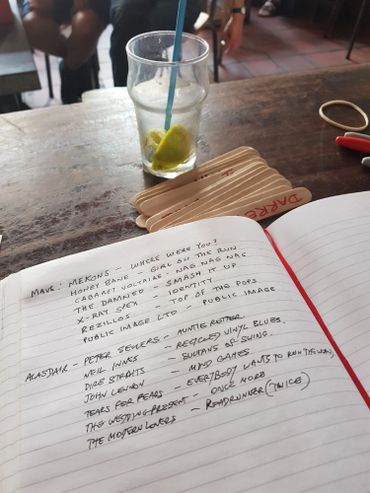 DARRE
MEKONS - WHERE WERE YOU?
HONEY BANE - GIRL ON THE RUN
CABARET VOLTAIRE - NAG NAG NAG
THE DAMNED - SMASH IT UP
X-RAY SPEX - IDENTITY
REZILLOS - TOP OF THE POPS
PUBLIC IMAGE LTD - PUBLIC IMAGE
ALASDAIR - PETER SELLERS - AUNTIE ROTTER
NEIL INNES - RECYCLED VINYL BLUES
DIRE STRAITS - SULTANS OF SWING
JOHN LENNON - MIND GAMES
TEARS FOR FEARS - EVERYBODY WANTS TO RUN THE WORLD
THE WEDDING PRESENT - ONCE MORE
THE MODERN LOVERS - ROADRUNNER (TWICE)